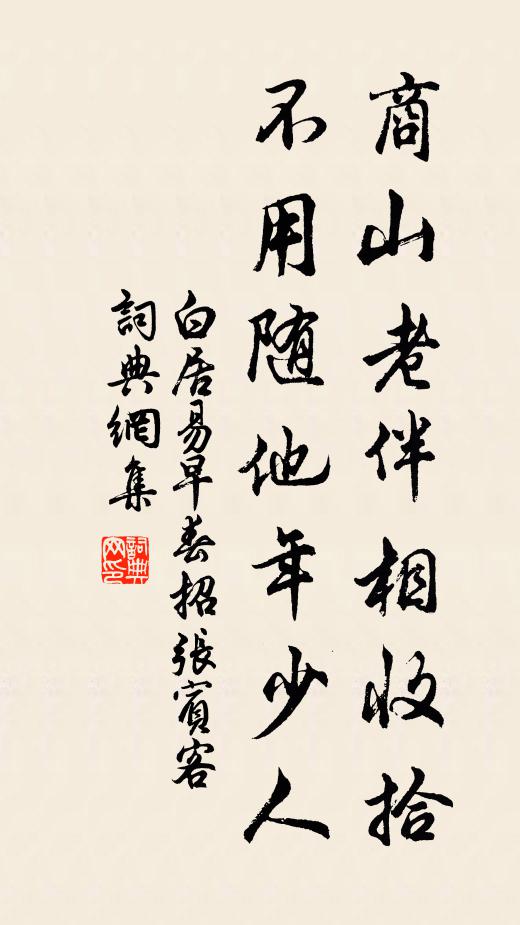 商山老伴相收拾
不用随他年少人
白居易早春招張賓客
詞典網集
詞典網印